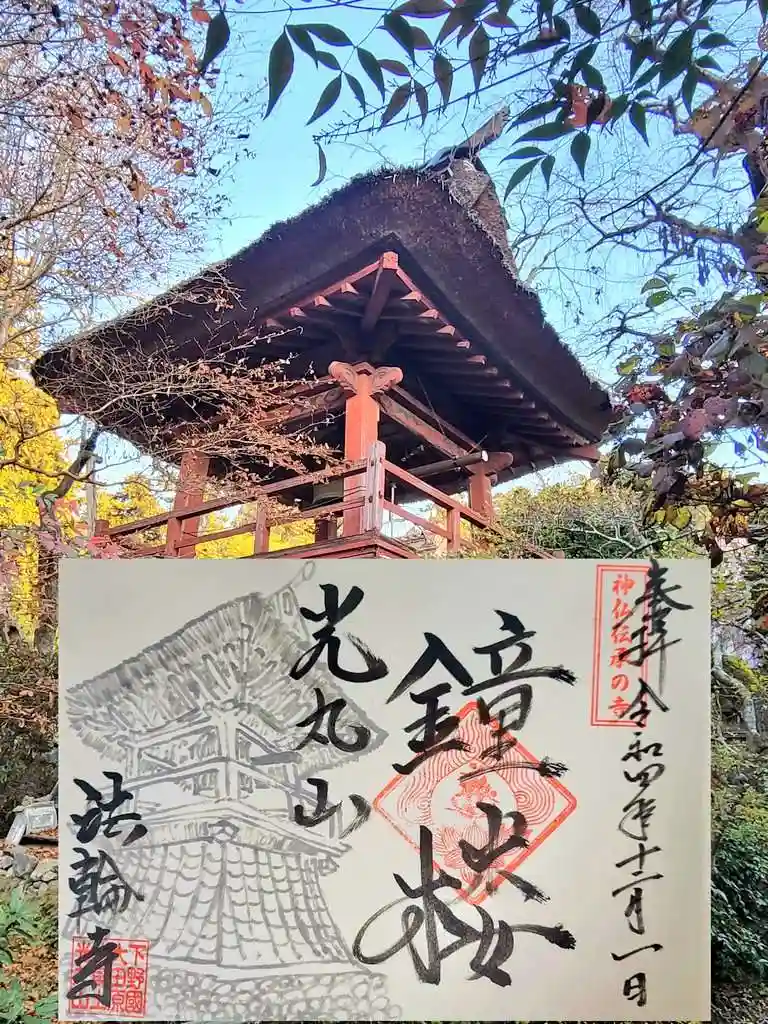 奉拝 令和四年十二月一日
神仏伝承の寺
鐘楼
光丸山
法輪寺
下野國
大田原